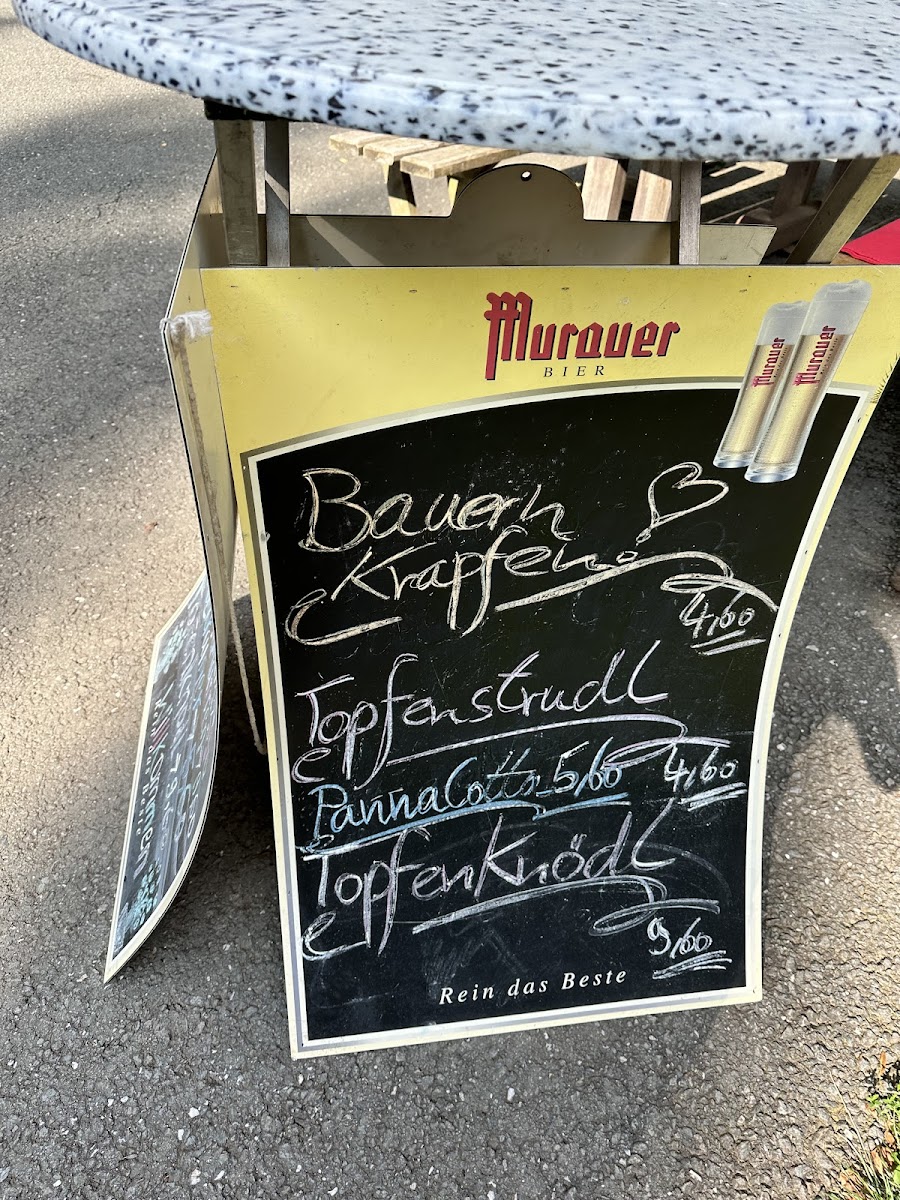 Murauer
BIER
Murauer
Murauer
Bauern
Krapfen
4,60
Topfenstrudl
4,60
Panna Cotta 5,60
TopfenKnödl
9,60
Rein das Beste